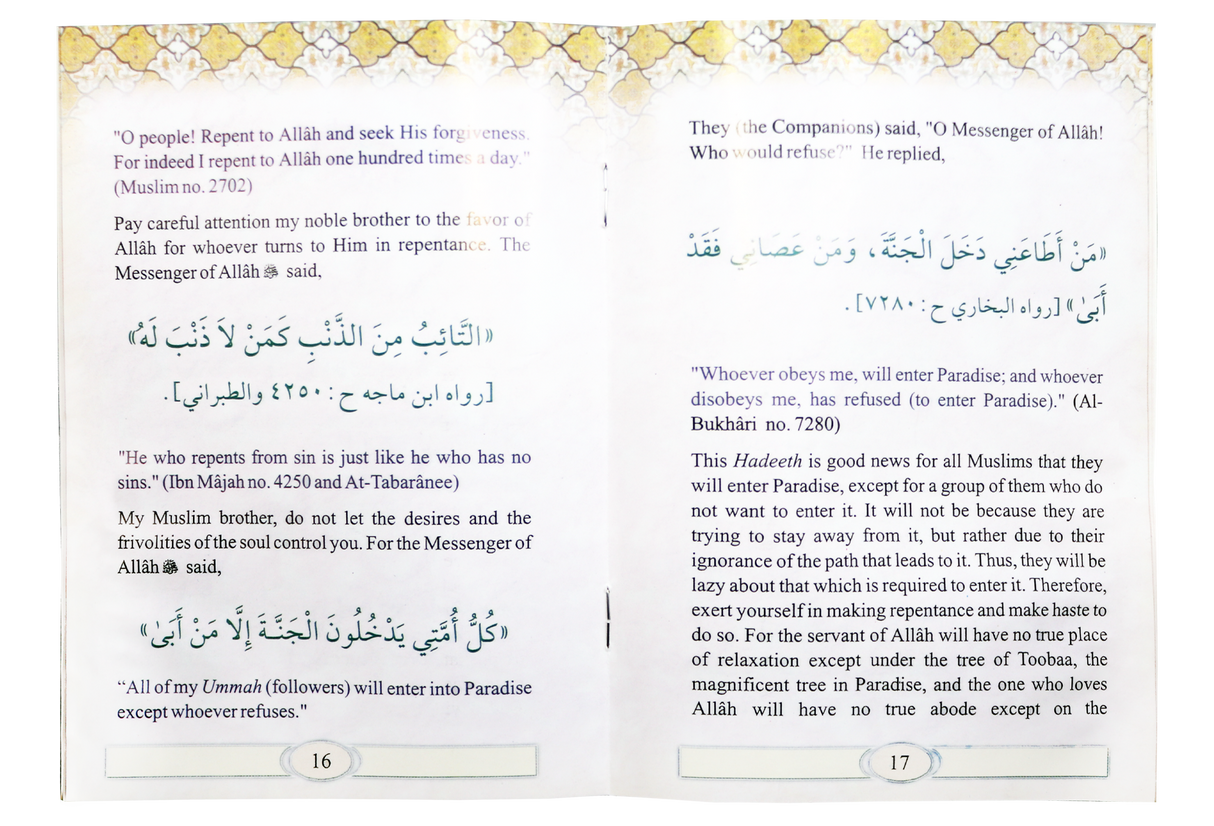 "O people! Repent to Allâh and seek His forgiveness.
For indeed I repent to Allâh one hundred times a day."
(Muslim no. 2702)
Pay careful attention my noble brother to the favor of
Allâh for whoever turns to Him in repentance. The
Messenger of Allâh ﷺ said,
«التَّائِبُ مِنَ الذَّنْبِ كَمَنْ لاَ ذَنْبَ لَهُ»
[رواه ابن ماجه ح : ٤٢٥٠ والطبراني].
"He who repents from sin is just like he who has no
sins." (Ibn Mâjah no. 4250 and At-Tabarânee)
My Muslim brother, do not let the desires and the
frivolities of the soul control you. For the Messenger of
Allâh ﷺ said,
«كُلُّ أُمَّتِي يَدْخُلُونَ الْجَنَّةَ إِلَّا مَنْ أَبَىٰ»
“All of my Ummah (followers) will enter into Paradise
except whoever refuses."
16
They (the Companions) said, "O Messenger of Allâh!
Who would refuse?" He replied,
«مَنْ أَطَاعَنِي دَخَلَ الْجَنَّةَ، وَمَنْ عَصَانِي فَقَدْ
أَبَىٰ» [رواه البخاري ح : ٧٢٨٠].
"Whoever obeys me, will enter Paradise; and whoever
disobeys me, has refused (to enter Paradise)." (Al-
Bukhâri no. 7280)
This Hadeeth is good news for all Muslims that they
will enter Paradise, except for a group of them who do
not want to enter it. It will not be because they are
trying to stay away from it, but rather due to their
ignorance of the path that leads to it. Thus, they will be
lazy about that which is required to enter it. Therefore,
exert yourself in making repentance and make haste to
do so. For the servant of Allâh will have no true place
of relaxation except under the tree of Toobaa, the
magnificent tree in Paradise, and the one who loves
Allâh will have no true abode except on the
17